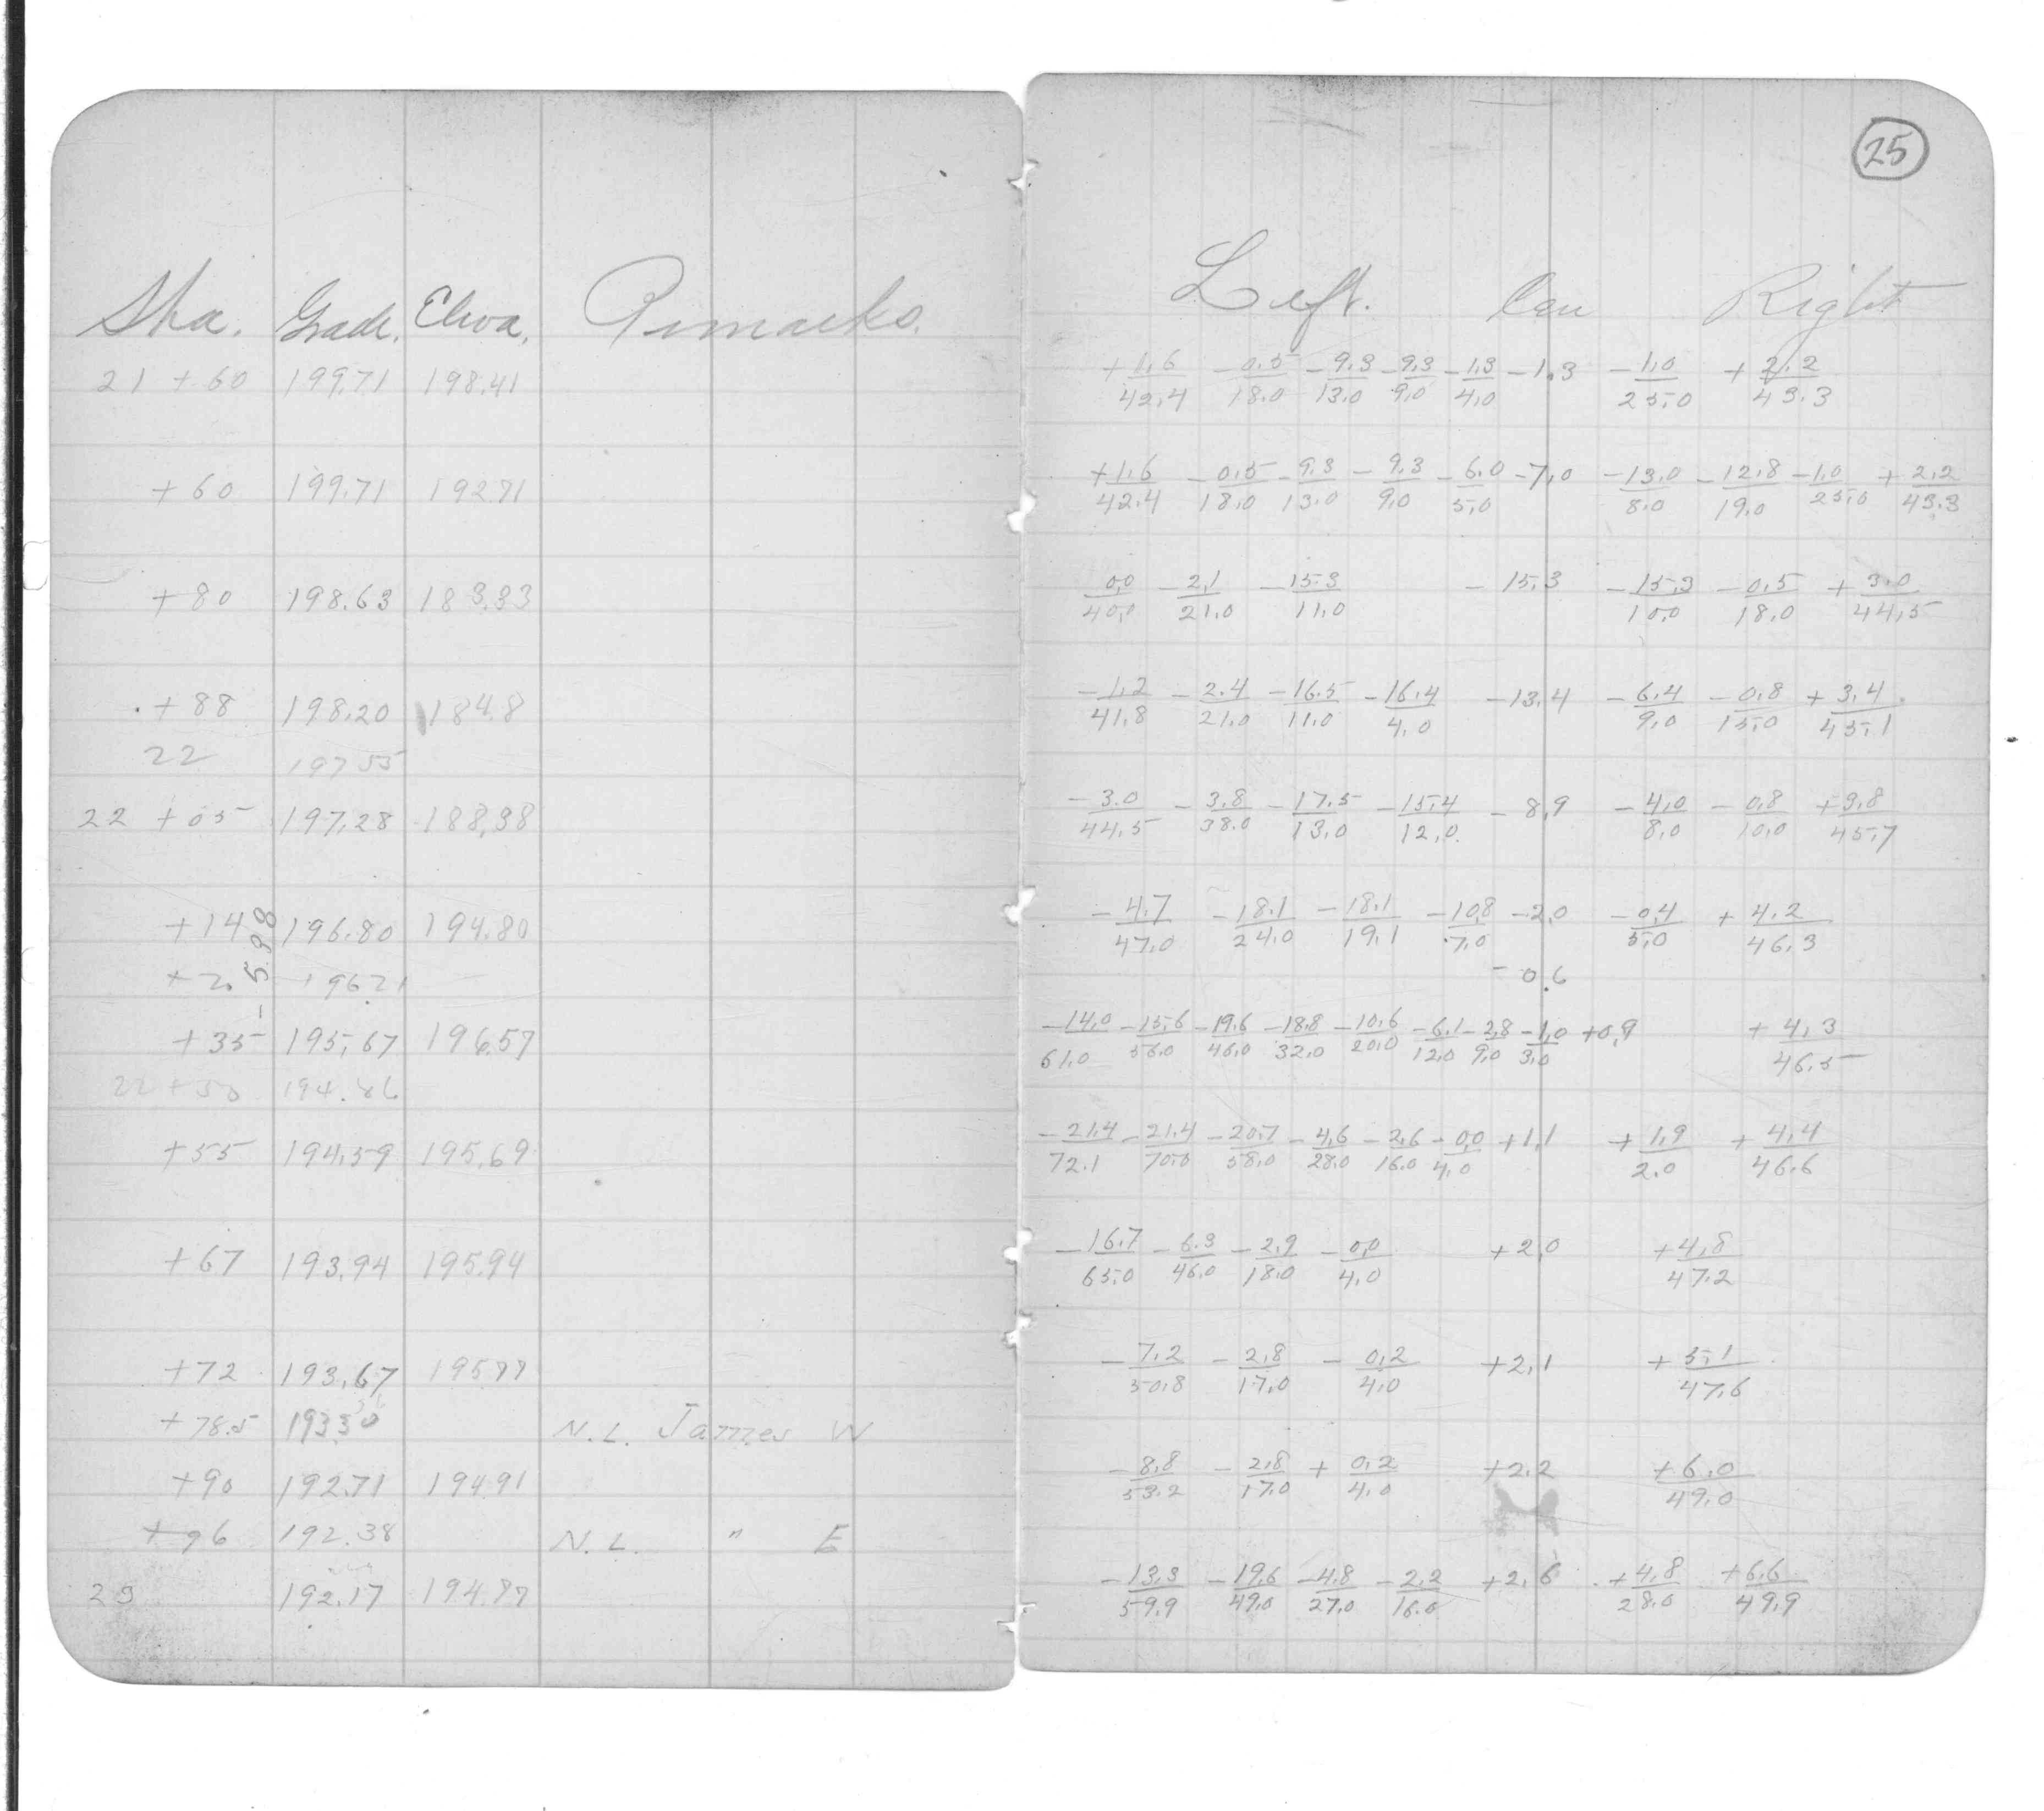 25
Sta. Grade. Eleva. Remarks. Left. Cen Right
21 + 60 199.71 198.41 +1.6/42.4 -0.5/18.0 -9.3/13.0 -9.3/9.0 -1.3/4.0 -1.3 -1.0/25.0 +2.2/43.3
+60 199.71 192.71 +1.6/42.4 -0.5/18.0 -9.3/13.0 -9.3/9.0 -6.0/5.0 -7.0 -13.0/8.0 -12.8/19.0 -1.0/25.0 +2.2/43.3
+80 198.63 183.33 0.0/40.0 -2.1/21.0 -15.3/11.0 -15.3 -15.3/10.0 -0.5/18.0 +3.0/44.5
+88 198.20 184.8 -1.2/41.8 -2.4/21.0 -16.5/11.0 -16.4/4.0 -13.4 -6.4/9.0 -0.8/15.0 +3.4/45.1
22 197 55
22 +05 197.28 188.38 -3.0/44.5 -3.8/38.0 -17.5/13.0 -15.4/12.0 -8.9 -4.0/8.0 -0.8/10.0 +3.8/45.7
+14 196.80 194.80 -4.7/47.0 -18.1/24.0 -18.1/19.1 -10.8/7.0 -2.0 -0.4/5.0 +4.2/46.3
-5.98
+2 +96 21 -0.6
+35 195.67 196.57 -14.0/61.0 -15.6/56.0 -19.6/46.0 -18.8/32.0 -10.6/20.0 -6.1/12.0 -2.8/9.0 -1.0/3.0 +0.9 +4.3/46.5
22 +50 194.86
+55 194.59 195.69 -21.4/72.1 -21.4/70.0 -20.7/58.0 -4.6/28.0 -2.6/16.0 -0.0/4.0 +1.1 +1.9/2.0 +4.4/46.6
+67 193.94 195.94 -16.7/65.0 -6.3/46.0 -2.9/18.0 -0.0/4.0 +2.0 +4.8/47.2
+72 193.67 195.77 -7.2/50.8 -2.8/17.0 -0.2/4.0 +2.1 +5.1/47.6
+78.5 193 30 N.L. James W
+90 192.71 194.91 -8.8/53.2 -2.8/17.0 +0.2/4.0 +2.2 +6.0/49.0
+96 192.38 N.L. " E
23 192.17 194.77 -13.3/59.9 -19.6/49.0 -4.8/27.0 -2.2/16.0 +2.6 +4.8/28.0 +6.6/49.9